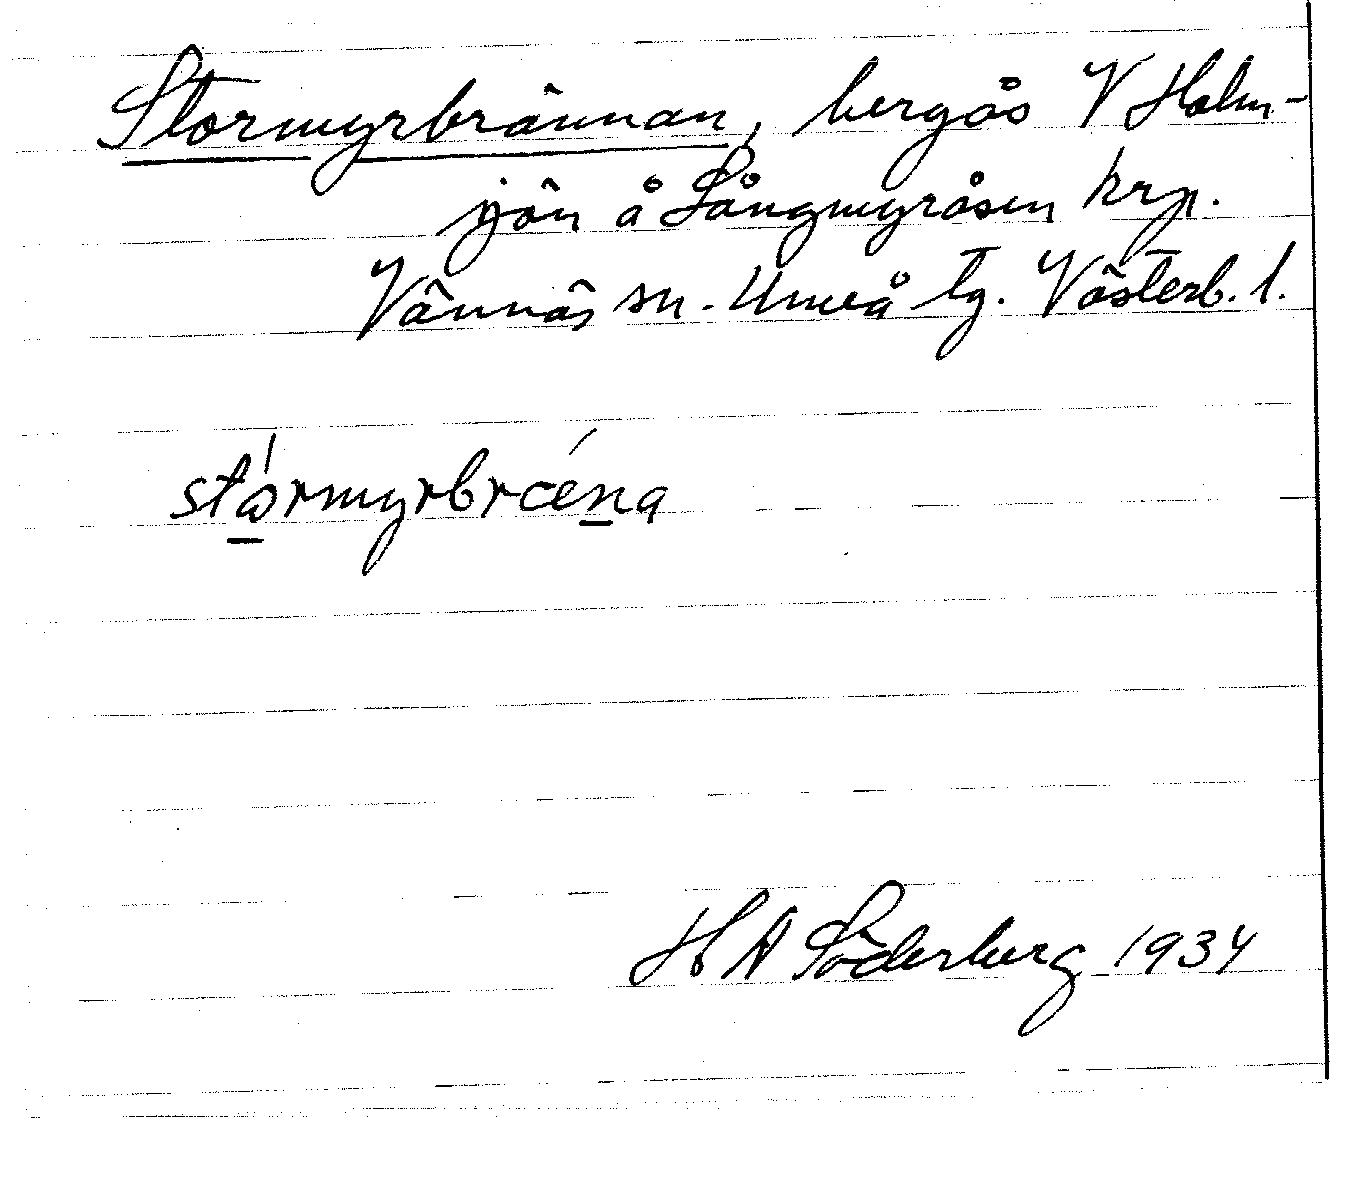 Stormyrbrännan, bergås V Holm-
jön å Långmyråsen krp.
Vännäs sn. Umeå tg. Västerb. l.
stǫ́rmyrbrǽn̲a
H A Söderberg 1934